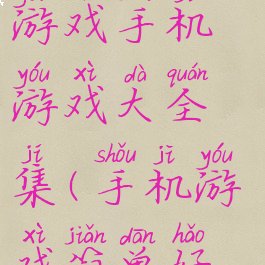 游戏手机
yóu xì dà quán
游戏大全
jí shǒu jī yóu
集(手机游
xì jiǎn dān hǎo
戏简单好